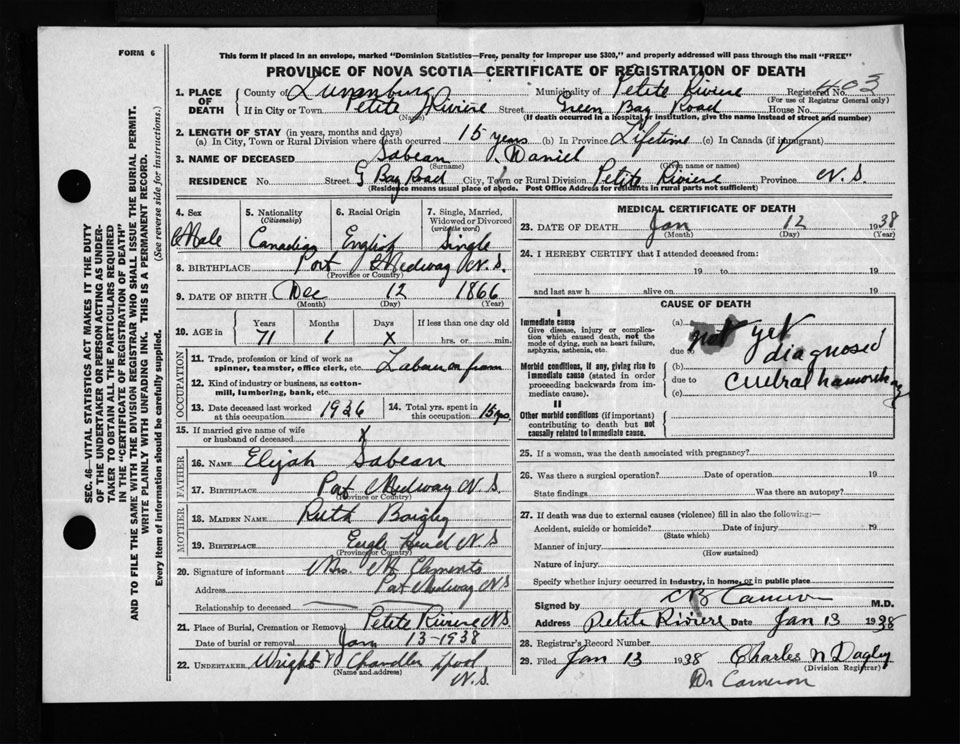 FORM 6
This form if placed in an envelope, marked "Dominion Statistics—Free, penalty for improper use $300," and properly addressed will pass through the mail "FREE"
PROVINCE OF NOVA SCOTIA—CERTIFICATE OF REGISTRATION OF DEATH
1. PLACE OF DEATH County of Lunenburg Municipality of Petite Riviere Registered No. 403
(For use of Registrar General only)
If in City or Town Petite Riviere Street Green Bay Road House No.
(Name) (If death occurred in a hospital or institution, give the name instead of street and number)
2. LENGTH OF STAY (in years, months and days)
(a) In City, Town or Rural Division where death occurred 15 years (b) In Province Lifetime (c) In Canada (if immigrant)
3. NAME OF DECEASED Sabean, Daniel
(Surname) (Given name or names)
RESIDENCE No. Street G Bay Road City, Town or Rural Division Petite Riviere Province N.S.
(Residence means usual place of abode. Post Office Address for residents in rural parts not sufficient)
SEC. 46—VITAL STATISTICS ACT MAKES IT THE DUTY
OF THE UNDERTAKER OR PERSON ACTING AS UNDER-
TAKER TO OBTAIN ALL THE PARTICULARS REQUIRED
IN THE "CERTIFICATE OF REGISTRATION OF DEATH"
AND TO FILE THE SAME WITH THE DIVISION REGISTRAR WHO SHALL ISSUE THE BURIAL PERMIT.
WRITE PLAINLY WITH UNFADING INK. THIS IS A PERMANENT RECORD.
Every item of information should be carefully supplied. (See reverse side for instructions.)
4. Sex 5. Nationality 6. Racial Origin 7. Single, Married,
(Citizenship) Widowed or Divorced
(write the word)
Male Canadian English Single
8. BIRTHPLACE Port Medway N.S.
(Province or Country)
9. DATE OF BIRTH Dec 12 1866
(Month) (Day) (Year)
10. AGE in Years Months Days If less than one day old
71 1 X hrs. or min.
OCCUPATION
11. Trade, profession or kind of work as
spinner, teamster, office clerk, etc. Labour on farm
12. Kind of industry or business, as cotton-
mill, lumbering, bank, etc.
13. Date deceased last worked 14. Total yrs. spent in
at this occupation 1936 in this occupation 15 yrs
15. If married give name of wife
or husband of deceased X
FATHER
16. NAME Elijah Sabean
17. BIRTHPLACE Port Medway N.S.
(Province or Country)
MOTHER
18. MAIDEN NAME Ruth
19. BIRTHPLACE Eagle Head N.S
(Province or Country)
20. Signature of informant Mrs.
Address Port Medway N.S
Relationship to deceased
21. Place of Burial, Cremation or Removal Petite Riviere N.S.
Date of burial or removal Jan 13-1938
22. UNDERTAKER Wright N Chandler
(Name and address)
N.S.
MEDICAL CERTIFICATE OF DEATH
23. DATE OF DEATH Jan 12 1938
(Month) (Day) (Year)
24. I HEREBY CERTIFY that I attended deceased from:
19 to 19
and last saw h alive on 19
CAUSE OF DEATH
I
Immediate cause (a) not yet
Give disease, injury or complica-
tion which caused death, not the
mode of dying, such as heart failure,
asphyxia, asthenia, etc.
due to diagnosed
Morbid conditions, if any, giving rise to
immediate cause (stated in order
proceeding backwards from im-
mediate cause).
(b)
due to
(c)
II
Other morbid conditions (if important)
contributing to death but not
causally related to immediate cause.
25. If a woman, was the death associated with pregnancy?
26. Was there a surgical operation? Date of operation 19
State findings Was there an autopsy?
27. If death was due to external causes (violence) fill in also the following:—
Accident, suicide or homicide? Date of injury 19
(State which)
Manner of injury
(How sustained)
Nature of injury
Specify whether injury occurred in industry, in home, or in public place
Signed by Cameron M.D.
Address Petite Riviere Date Jan 13 1938
28. Registrar's Record Number
29. Filed Jan 13 1938 Charles N Dagley
(Division Registrar)
Dr Cameron